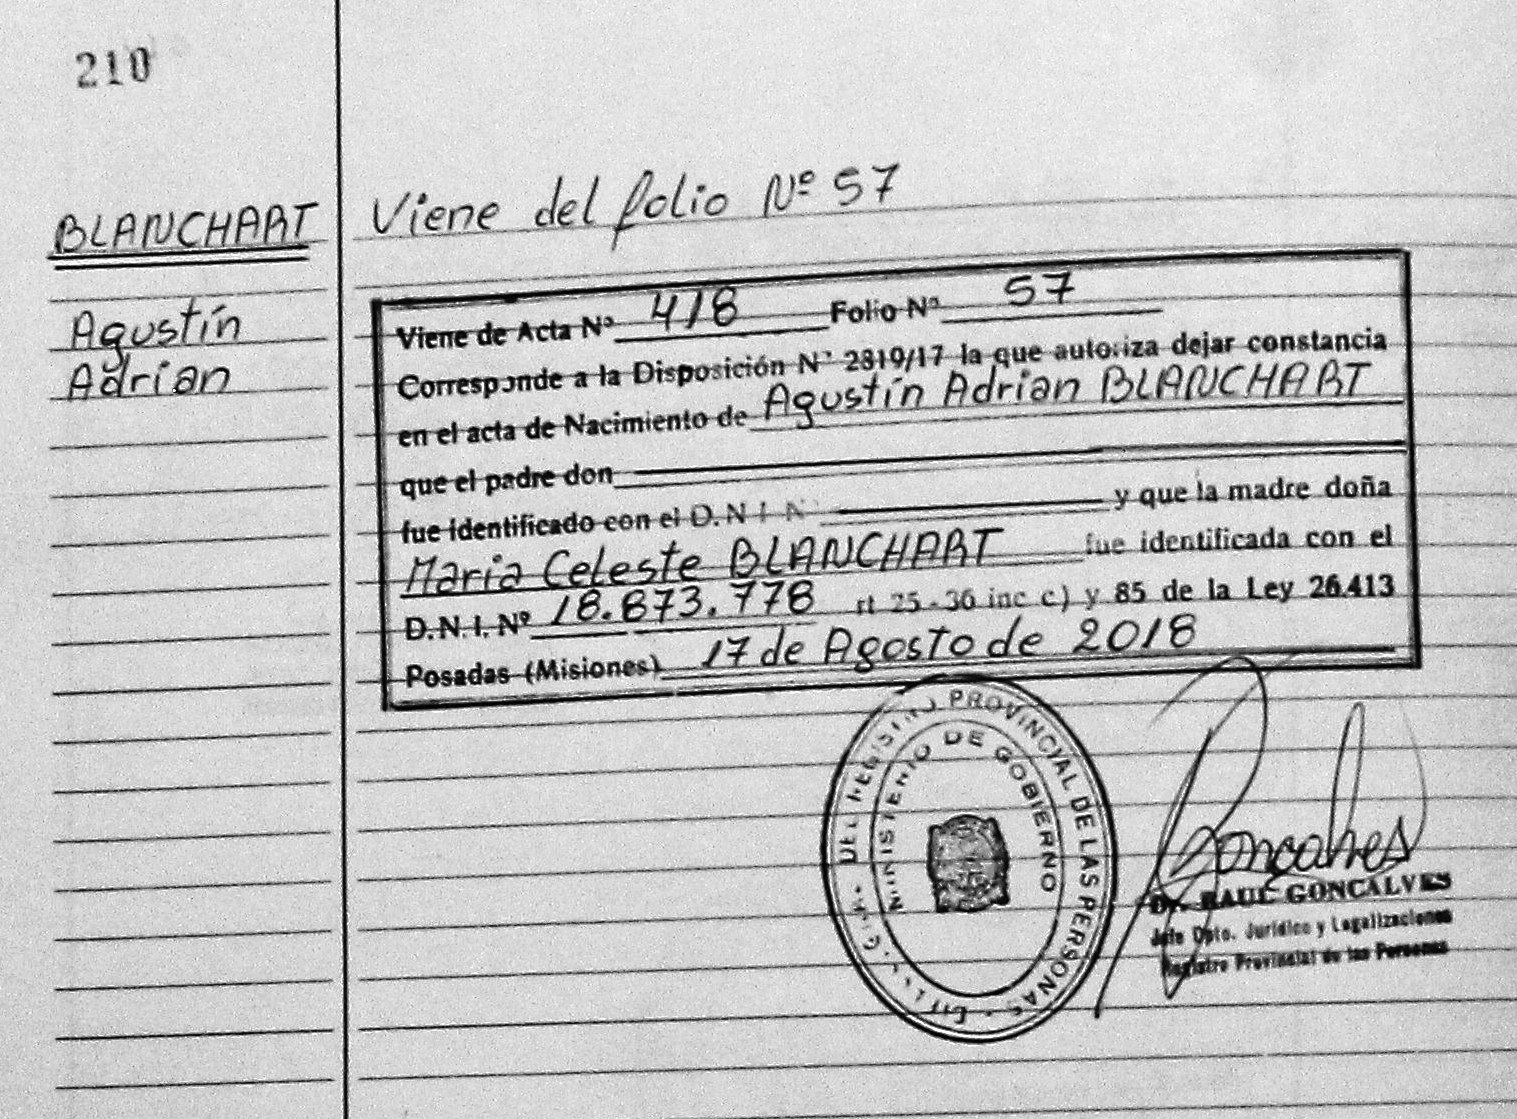 210
BLANCHART
Agustín
Adrian
Viene del folio Nº 57
Viene de Acta Nº 418 Folio Nº 57
Corresponde a la Disposición Nº 2819/17 la que autoriza dejar constancia
en el acta de Nacimiento de Agustín Adrian BLANCHART
que el padre don
fue identificado con el D.N.I. N° y que la madre doña
Maria Celeste BLANCHART fue identificada con el
D.N.I. Nº 18.873.778 rt 25-36 inc c) y 85 de la Ley 26.413
Posadas (Misiones) 17 de Agosto de 2018
DEL REGISTRO PROVINCIAL DE LAS PERSONAS
MINISTERIO DE GOBIERNO
Goncalves
Dr. RAUL GONCALVES
Jefe Dpto. Jurídico y Legalizaciones
Registro Provincial de las Personas